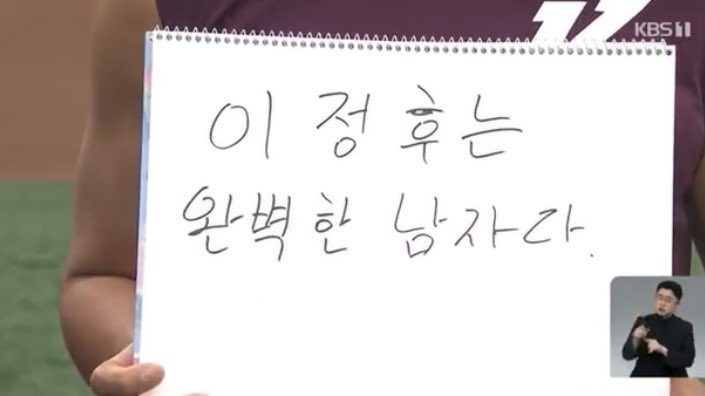 KBS 1
이 정 후 는
완벽한 남자다.